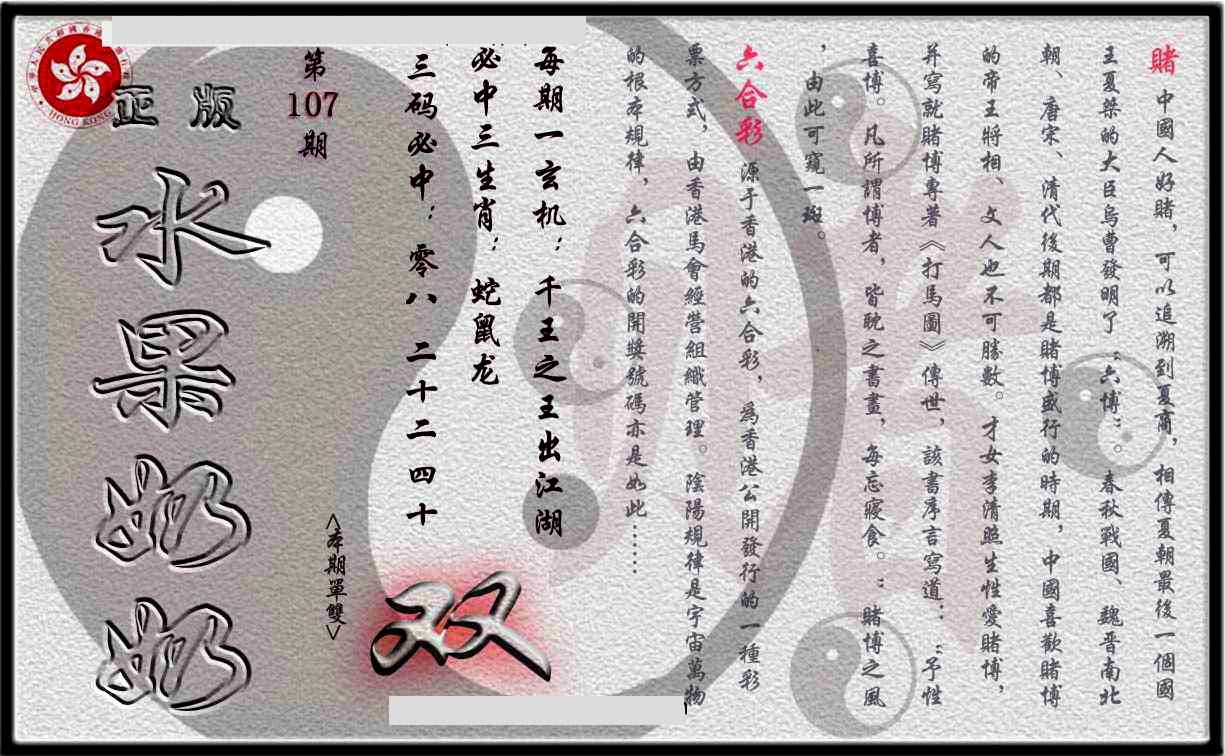 賭 中國人好賭，可以追溯到夏商，相傳夏朝最後一個國
王夏桀的大臣烏曹發明了“六博”。春秋戰國、魏晋南北
朝、唐宋、清代後期都是賭博盛行的時期，中國喜歡賭博
的帝王將相、文人也不可勝數。才女李清照生性愛賭博，
并寫就賭博專著《打馬圖》傳世，該書序言寫道：“予性
喜博。凡所謂博者，皆耽之書畫，每忘寢食。”賭博之風
，由此可窺一斑。
六合彩 源于香港的六合彩，為香港公開發行的一種彩
票方式，由香港馬會經營組織管理。陰陽規律是宇宙萬物
的根本規律，六合彩的開獎號碼亦是如此……
每期一玄机：千王之王出江湖
必中三生肖：蛇鼠龙
三码必中：零八 二十二 四十
双
<本期單雙>
第107期
正版
水果奶奶
HONG KONG